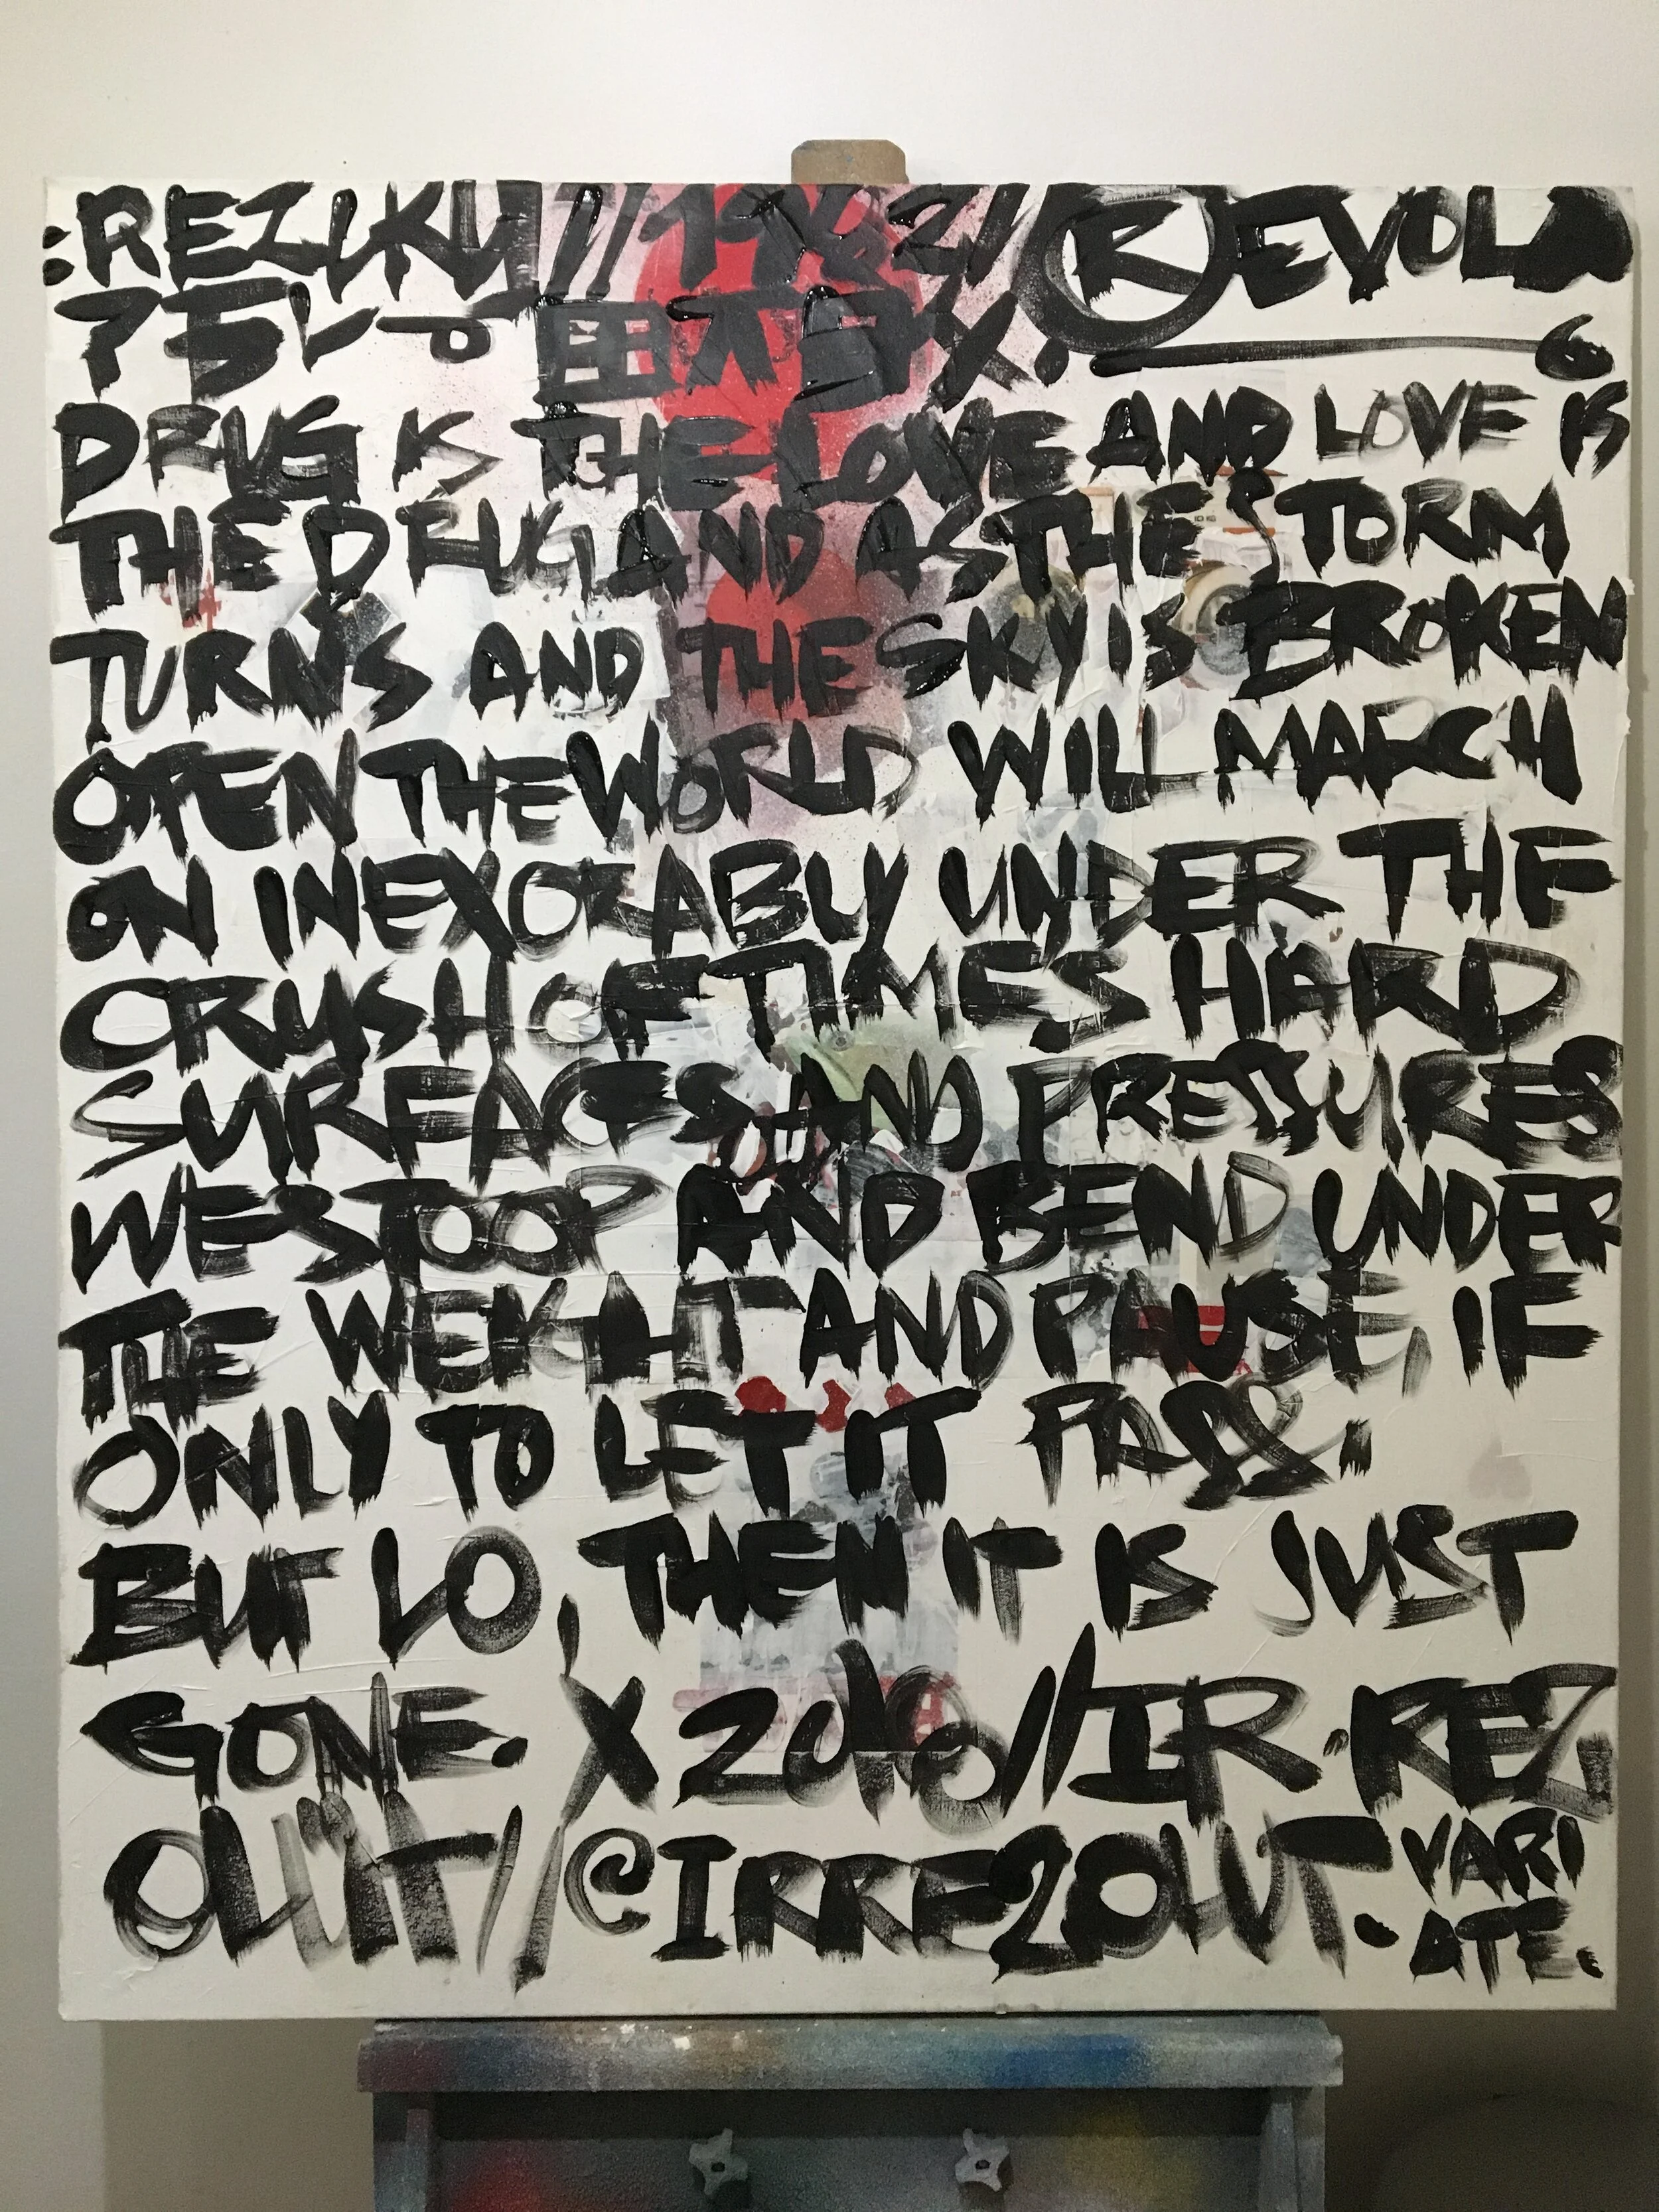 :REZIKU///1962//ⓇEVOL
X.
DRUG IS THE LOVE AND LOVE IS
THE DRUG, AND AS THE STORM
TURNS AND THE SKY IS BROKEN
OPEN THE WORLD WILL MARCH
ON INEXORABLY UNDER THE
CRUSH OF TIMES HARD
SURFACES AND PRESSURES
WE STOOP AND BEND UNDER
THE WEIGHT AND PAUSE, IF
ONLY TO LET IT PASS.
BUT LO, THEN IT IS JUST
GONE. X //IR.REZ
OLUT//@IRREZOLUT. VARI
ATE.